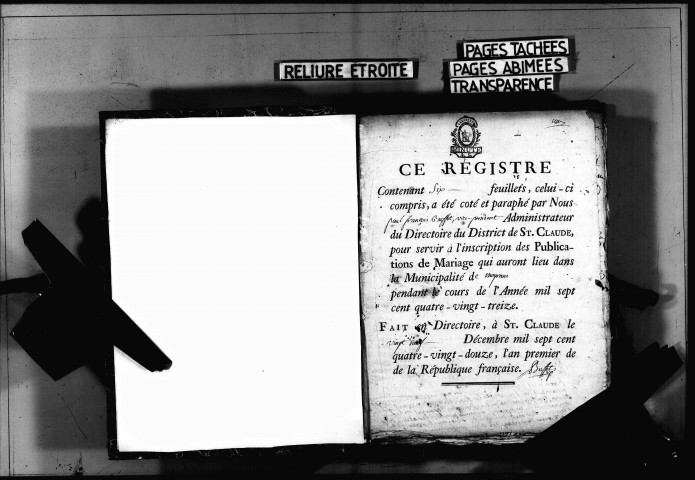 RELIURE ETROITE
PAGES TACHEES
PAGES ABIMEES
TRANSPARENCE
CE REGISTRE
Contenant Six feuillets, celui-ci
compris, a été coté et paraphé par Nous
Administrateur
du Directoire du District de ST. CLAUDE,
pour servir à l'inscription des Publica-
tions de Mariage qui auront lieu dans
la Municipalité de
pendant le cours de l'Année mil sept
cent quatre-vingt-treize.
FAIT en Directoire, à ST. CLAUDE le
vingt neuf Décembre mil sept cent
quatre-vingt-douze, l'an premier de
de la République française.